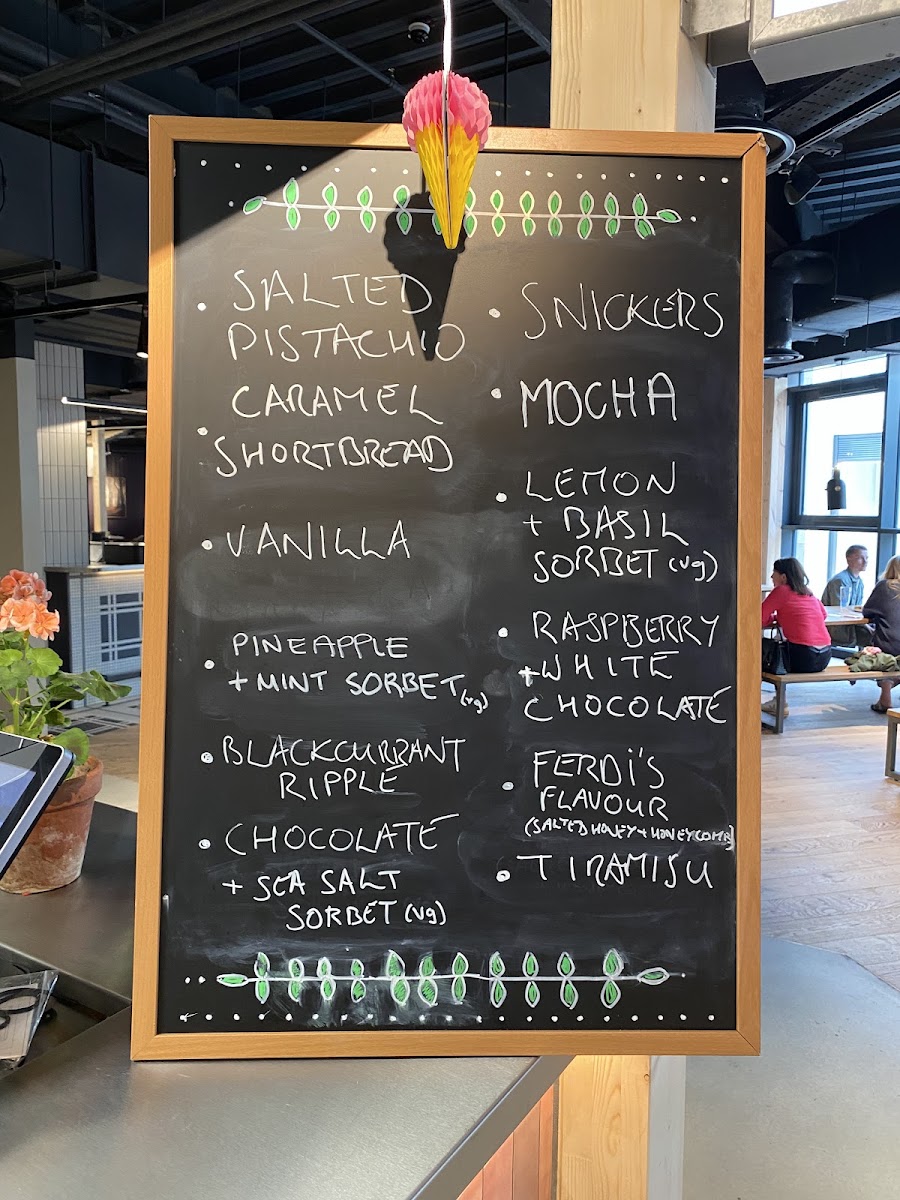 • SALTED
PISTACHIO
CARAMEL
• SHORTBREAD
• VANILLA
• PINEAPPLE
+ MINT SORBET (vg)
• BLACKCURRANT
RIPPLE
• CHOCOLATE
+ SEA SALT
SORBET (vg)
• SNICKERS
• MOCHA
• LEMON
+ BASIL
SORBET (vg)
• RASPBERRY
+ WHITE
CHOCOLATE
• FERDi'S
FLAVOUR
(SALTED HONEY + HONEYCOMB)
• TIRAMISU